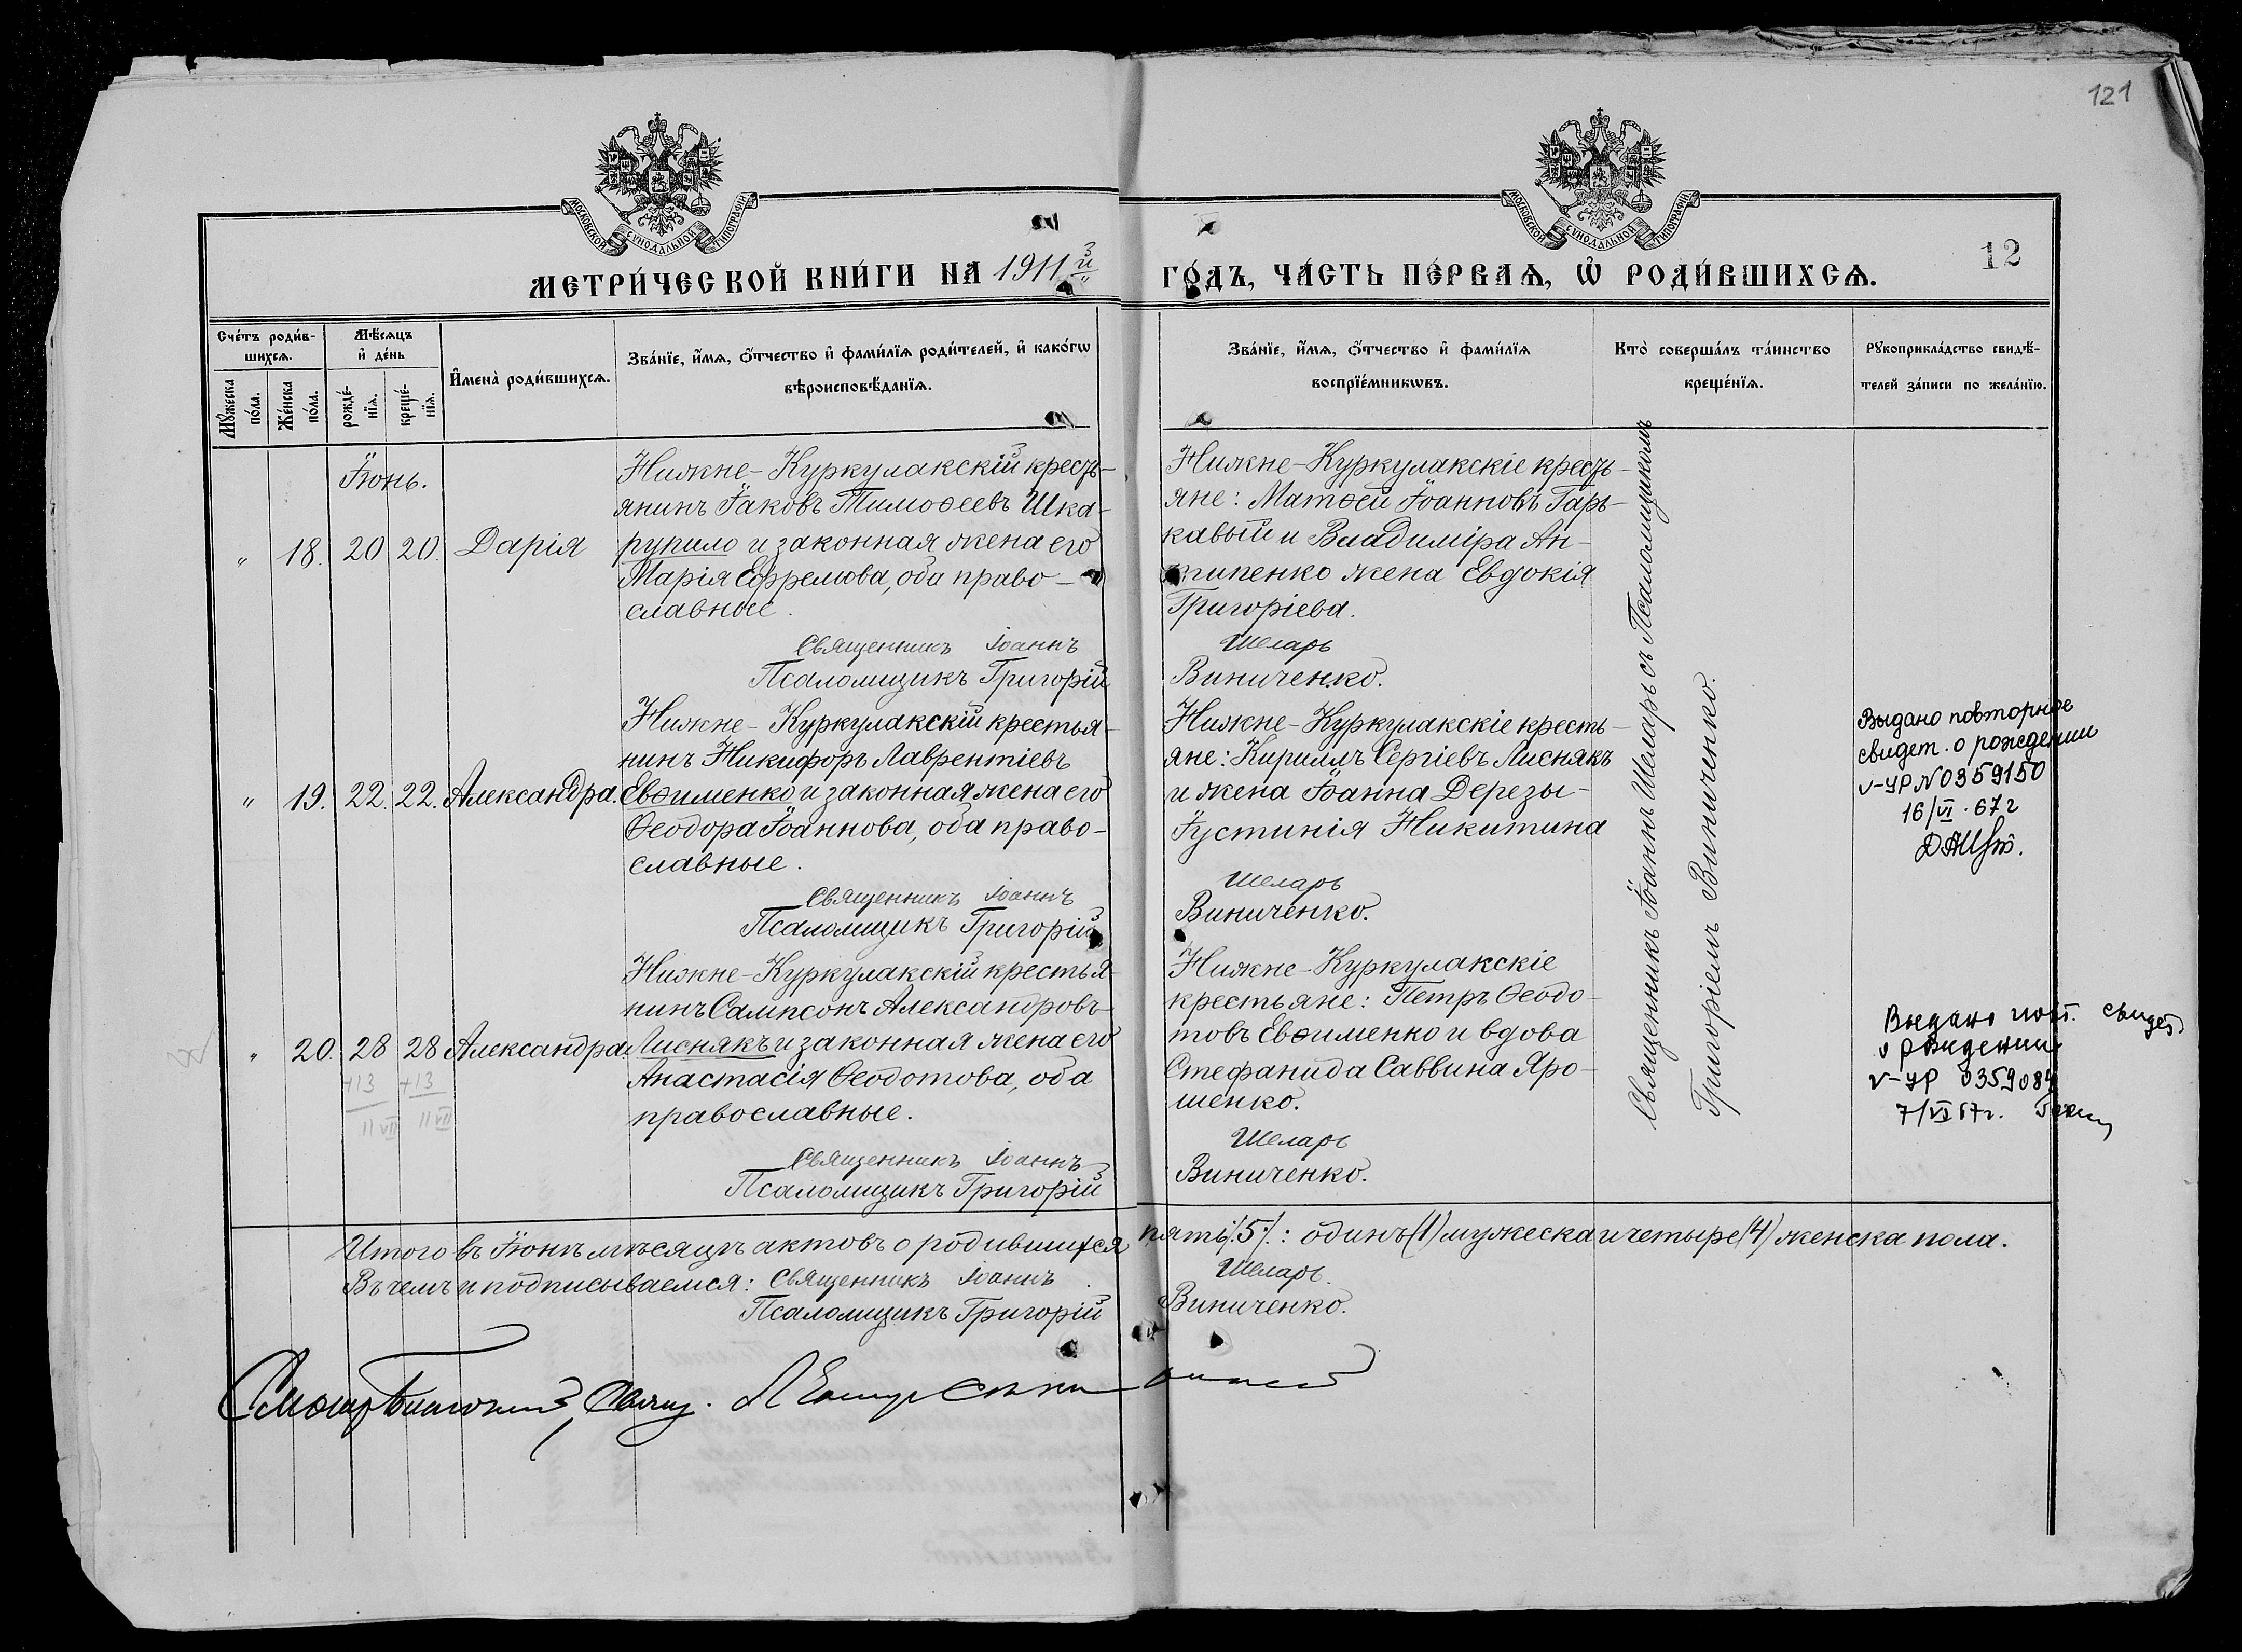 121
12
МОСКОВСКОЙ СѴНОДАЛЬНОЙ ТИПОГРАФІИ.
МОСКОВСКОЙ СѴНОДАЛЬНОЙ ТИПОГРАФІИ.
МЕТРИ́ЧЕСКОЙ КНИ́ГИ НА 1911й
ГО́ДЪ, ЧА́СТЬ ПЕ́РВАѦ, Ѡ҆ РОДИ́ВШИХСѦ.
Сче́тъ роди́в-
шихсѧ.
Мꙋ́жеска
по́ла.
Же́нска
по́ла.
Мѣ́сѧцъ
и҆ де́нь
рожде́-
нїѧ.
креще́-
нїѧ.
И҆мена̀ роди́вшихсѧ.
Зва́нїе, и҆́мѧ, ѻ҆́тчество и҆ фами́лїѧ роди́телей, и҆ како́гѡ
вѣроисповѣ́данїѧ.
Зва́нїе, и҆́мѧ, ѻ҆́тчество и҆ фами́лїѧ
воспрїе́мникѡвъ.
Кто̀ соверша́лъ та́инство
креще́нїѧ.
Рꙋкоприкла́дство свидѣ́-
телей за́писи по жела́нїю.
Іюнь.
" 18. 20 20. Дарія
Нижне-Куркулакскій кресть-
янинъ Іаковъ Тимоѳеевъ Шка-
рупило и законная жена его
Марія Ефремова, оба право-
славные.
Священникъ Іоаннъ
Псаломщикъ Григорій
Нижне-Куркулакскіе кресть-
яне: Матѳей Іоанновъ Гарь-
кавый и Владиміра Ан-
типенко жена Евдокія
Григоріева.
Шеларь
Виниченко.
" 19. 22. 22. Александра.
Нижне-Куркулакскій крестья-
нинъ Никифоръ Лаврентіевъ
Евѳименко и законная жена его
Ѳеодора Іоаннова, оба право-
славные.
Священникъ Іоаннъ
Псаломщикъ Григорій
Нижне-Куркулакскіе кресть-
яне: Кириллъ Сергіевъ Лиснякъ
и жена Іоанна Дерезы-
Іустинія Никитина
Шеларь
Виниченко.
Выдано повторное
свидет. о рождении
V-УР N0359150
16/VI.67г
" 20. 28 28 Александра.
+13 +13
11 VII 11 VII
Нижне-Куркулакскій крестья-
нинъ Сампсонъ Александровъ
Лиснякъ и законная жена его
Анастасія Ѳеодотова, оба
православные.
Священникъ Іоаннъ
Псаломщикъ Григорій
Нижне-Куркулакскіе
крестьяне: Петръ Ѳеодо-
товъ Евѳименко и вдова
Стефанида Саввина Яро-
шенко.
Шеларь
Виниченко.
Священникъ Іоаннъ Шеларь съ Псаломщикомъ
Григоріемъ Виниченко.
Выдано повт. свидет
о рождении
V-УР 0359084
7/VI 67г.
Итого въ Іюнѣ мѣсяцѣ актовъ о родившихся пять /5/.: одинъ (1) мужеска и четыре (4) женска пола.
Въ чемъ и подписываемся: Священникъ Іоаннъ Шеларь.
Псаломщикъ Григорій Виниченко.